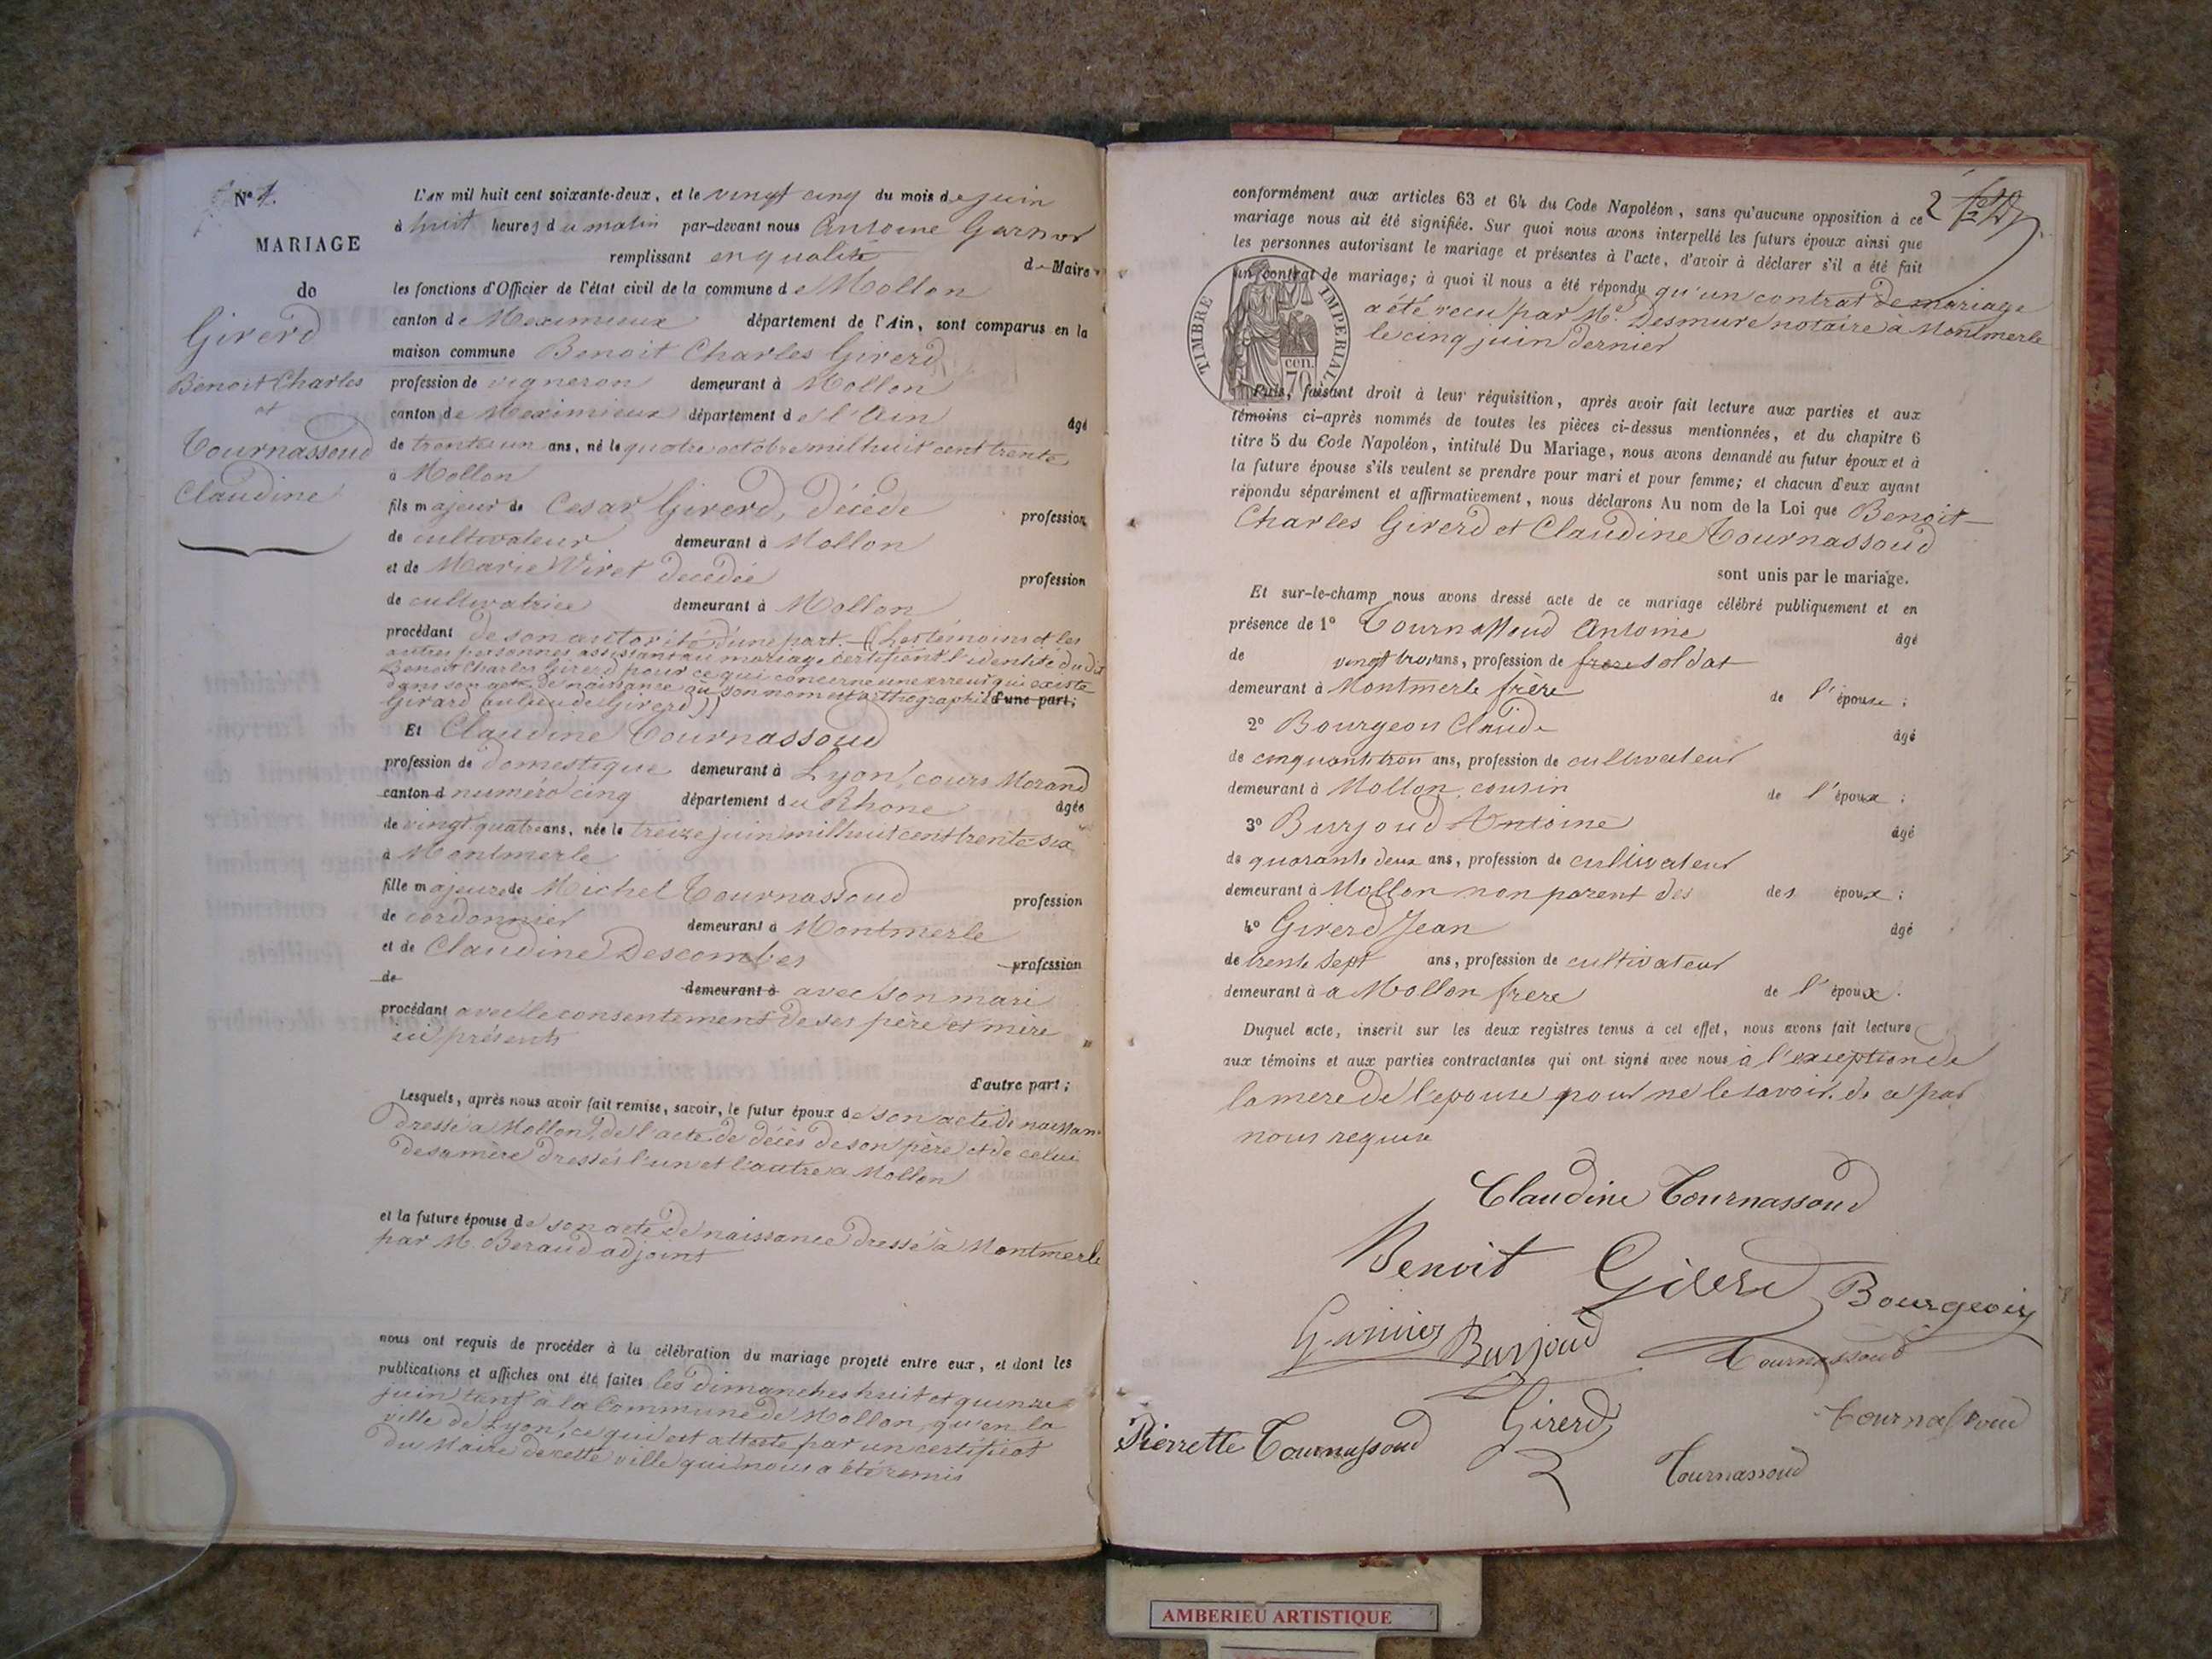 N° 1.
MARIAGE
de
Girerd
Benoit Charles
et
Tournassoud
Claudine
L'AN mil huit cent soixante-deux, et le vingt cinq du mois de juin
à huit heures du matin par-devant nous Antoine Garnier
remplissant en qualité de Maire
les fonctions d'Officier de l'état civil de la commune de Mollon
canton de Meximieux département de l'Ain, sont comparus en la
maison commune Benoit Charles Girerd
profession de vigneron demeurant à Mollon
canton de Meximieux département de l'Ain âgé
de trente un ans, né le quatre octobre mil huit cent trente
à Mollon
fils majeur de Cesar Girerd, décédé profession
de cultivateur demeurant à Mollon
et de Marie Viret decedée profession
de cultivatrice demeurant à Mollon
procédant de son autorité d'une part. (Les témoins et les
autres personnes assistant au mariage certifient l'identité du dit
Benoit Charles Girerd pour ce qui concerne une erreur qui existe
dans son acte de naissance où son nom est orthographié d'une part;
Girard au lieu de Girerd))
Et Claudine Tournassoud
profession de domestique demeurant à Lyon, cours Morand
canton d numéro cinq département du Rhone âgée
de vingt quatre ans, née le treize juin mil huit cent trente six
à Montmerle
fille majeure de Michel Tournassoud profession
de cordonnier demeurant à Montmerle
et de Claudine Descombes profession
de demeurant à avec son mari
procédant avec le consentement de ses père et mère
ici présents
d'autre part;
Lesquels, après nous avoir fait remise, savoir, le futur époux de son acte de naissan-
dressé à Mollon, de l'acte de décès de son père et de celui
de sa mère dressés l'un et l'autre à Mollon
et la future épouse de son acte de naissance dressé à Montmerle
par M. Beraud adjoint
nous ont requis de procéder à la célébration du mariage projeté entre eux, et dont les
publications et affiches ont été faites les dimanches huit et quinze
juin tant à la Commune de Mollon, qu'en la
ville de Lyon, ce qui est attesté par un certificat
du Maire de cette ville qui nous a été remis
conformément aux articles 63 et 64 du Code Napoléon, sans qu'aucune opposition à ce
mariage nous ait été signifiée. Sur quoi nous avons interpellé les futurs époux ainsi que
les personnes autorisant le mariage et présentes à l'acte, d'avoir à déclarer s'il a été fait
un contrat de mariage; à quoi il nous a été répondu qu'un contrat de mariage
a été reçu par Me. Desmure notaire à Montmerle
le cinq juin dernier
TIMBRE IMPERIAL
70 cen.
Puis, faisant droit à leur réquisition, après avoir fait lecture aux parties et aux
témoins ci-après nommés de toutes les pièces ci-dessus mentionnées, et du chapitre 6
titre 5 du Code Napoléon, intitulé Du Mariage, nous avons demandé au futur époux et à
la future épouse s'ils veulent se prendre pour mari et pour femme; et chacun d'eux ayant
répondu séparément et affirmativement, nous déclarons Au nom de la Loi que Benoit
Charles Girerd et Claudine Tournassoud
sont unis par le mariage.
Et sur-le-champ nous avons dressé acte de ce mariage célébré publiquement et en
présence de 1° Tournassoud Antoine âgé
de vingt trois ans, profession de frere soldat
demeurant à Montmerle frère de l'épouse;
2° Bourgeois Claude âgé
de cinquante trois ans, profession de cultivateur
demeurant à Mollon, cousin de l'époux;
3° Burjoud Antoine âgé
de quarante deux ans, profession de cultivateur
demeurant à Mollon non parent des des époux;
4° Girerd Jean âgé
de trente sept ans, profession de cultivateur
demeurant à a Mollon frere de l'époux.
Duquel acte, inscrit sur les deux registres tenus à cet effet, nous avons fait lecture
aux témoins et aux parties contractantes qui ont signé avec nous à l'exception de
la mere de l'epouse pour ne le savoir. de ce par
nous requise
Claudine Tournassoud
Benoit Girerd Bourgeois
Garnier Burjoud Tournassoud
Girerd Tournassoud
Pierrette Tournassoud
Tournassoud
AMBERIEU ARTISTIQUE